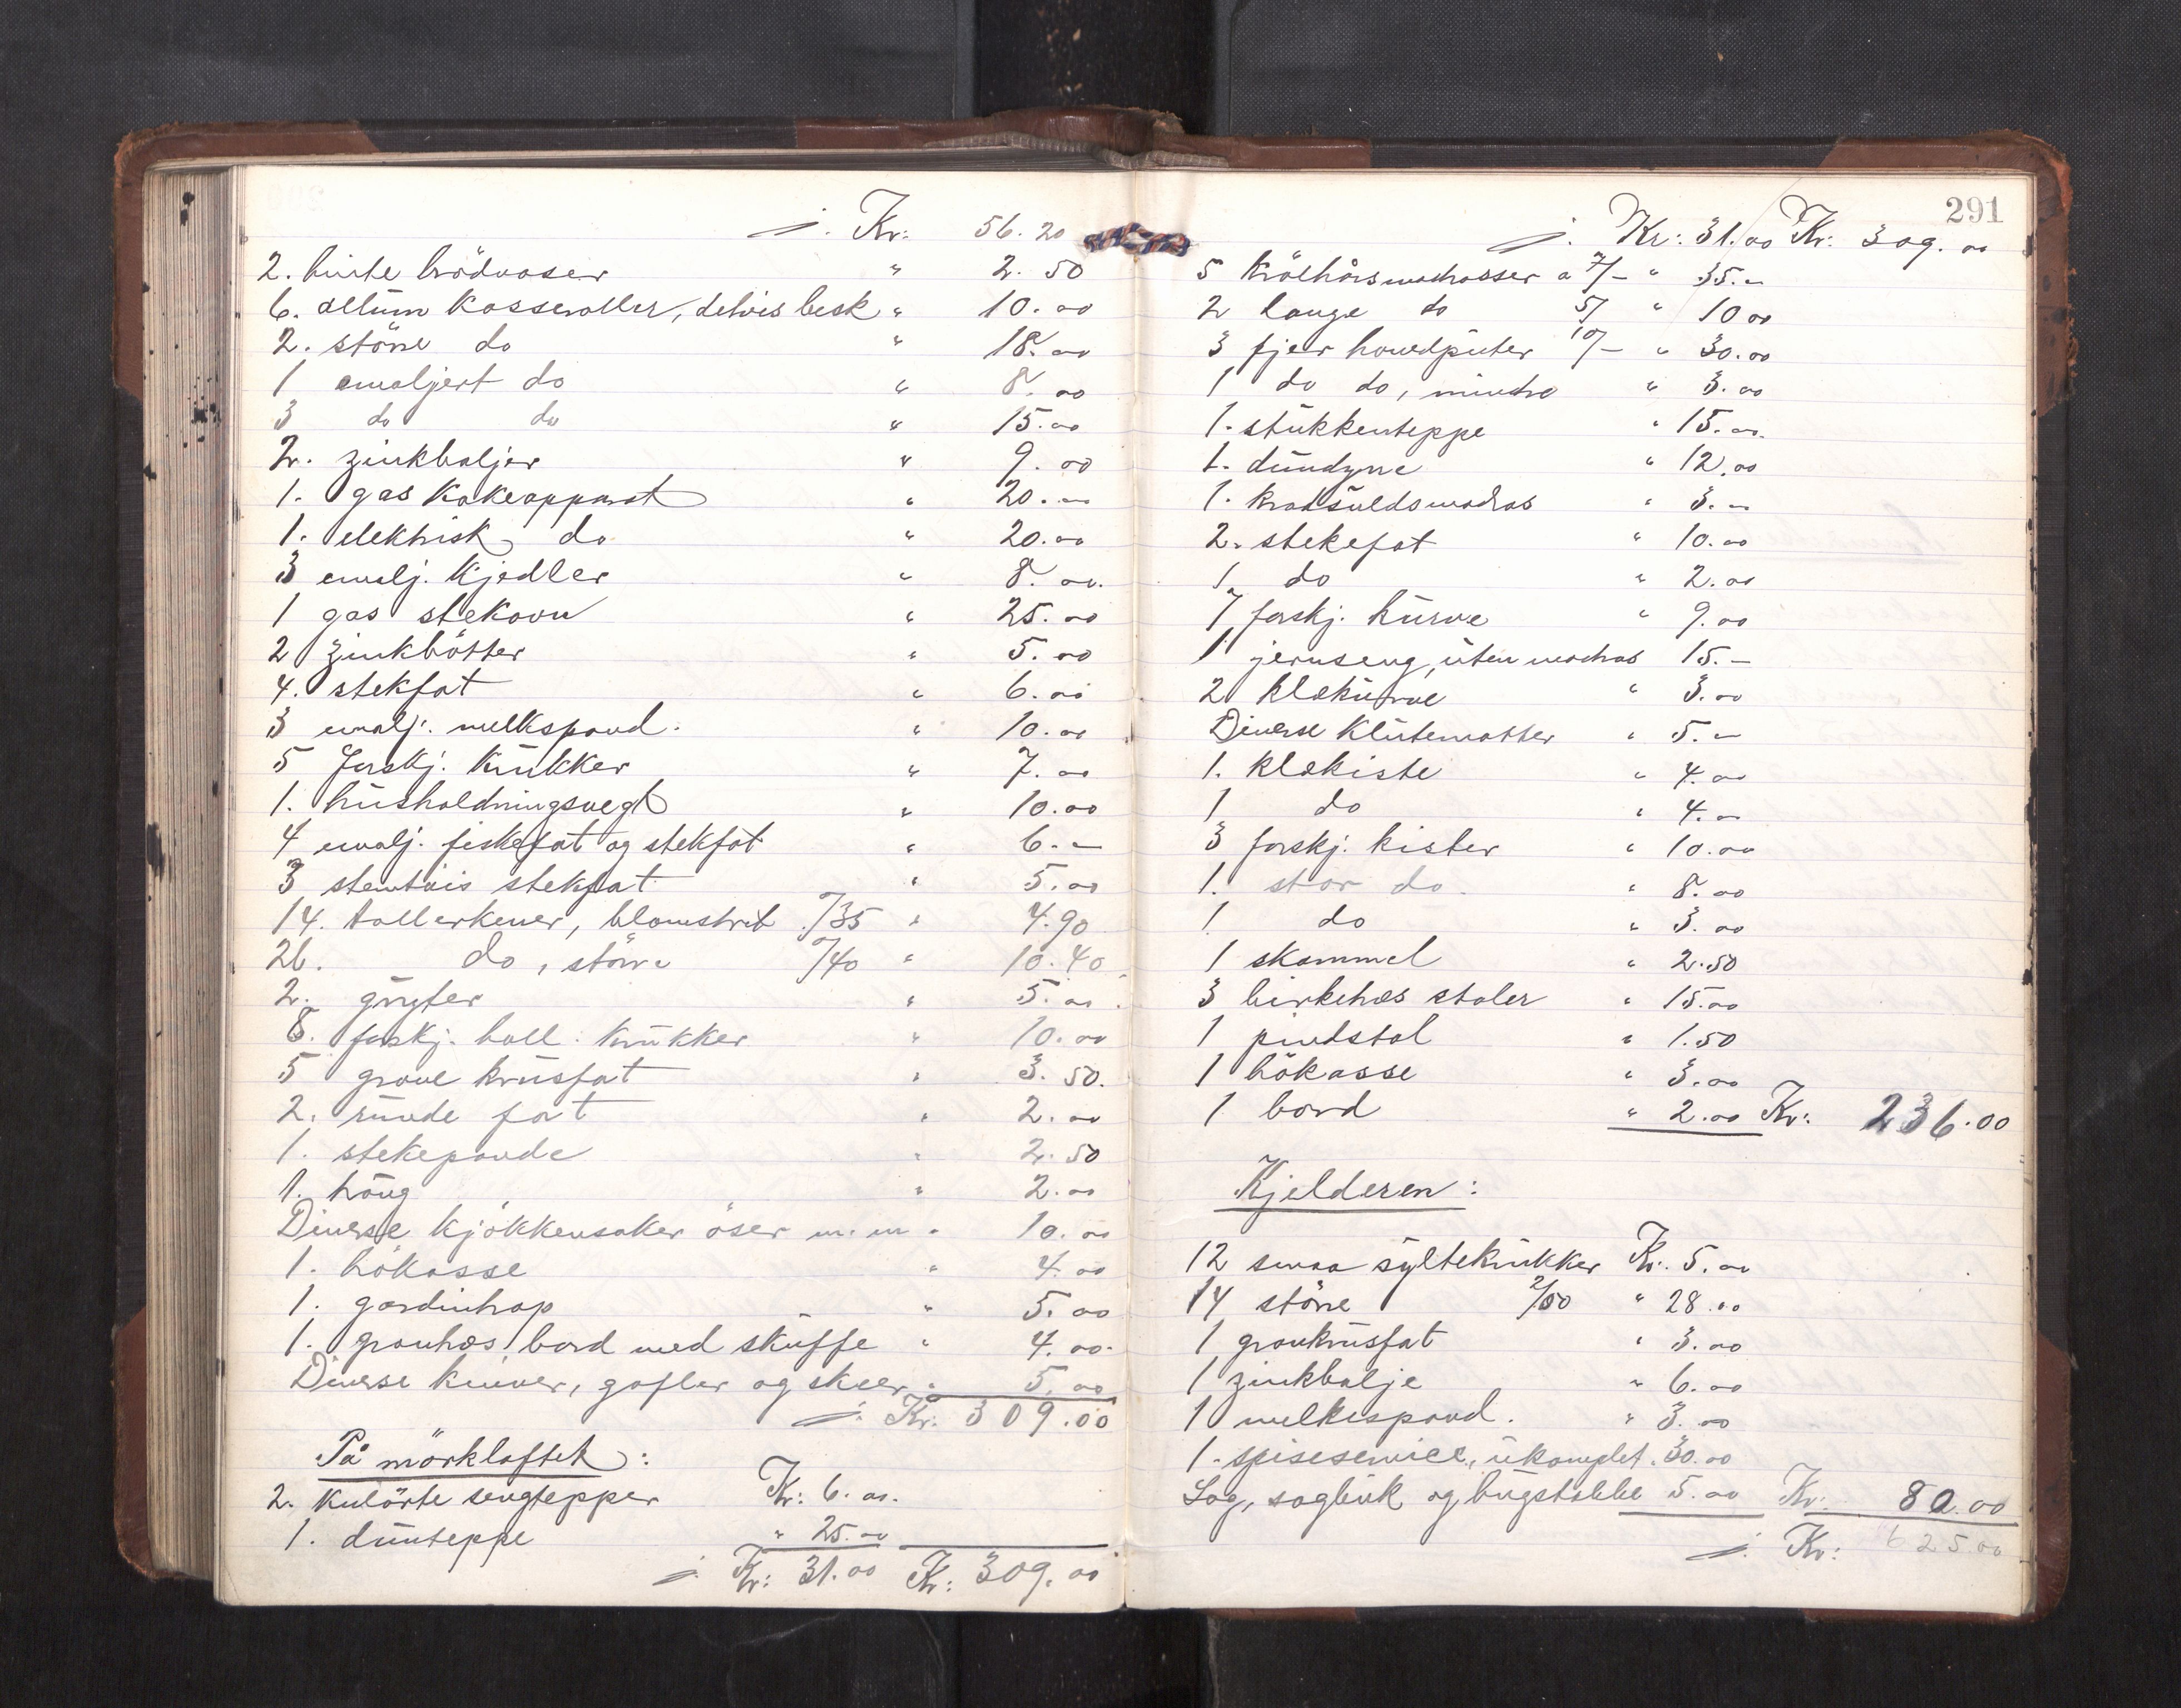 j. Kr: 56.20
2. hvite brödvaser " 2.50
6. allum kasseroller, delvis besk " 10.00
2. större do " 18.00
1 emaljert do " 8.00
3 do do " 15.00
2. zinkbaljer " 9.00
1. gas kokeapparat " 20.00
1. elektrisk do " 20.00
3 emalj. kjedler " 8.00
1 gas stekovn " 25.00
2 zinkbötter " 5.00
4. stekfat " 6.00
3 emalj. melkspand. " 10.00
5 forskj. krukker " 7.00
1. husholdningsvegt " 10.00
4 emalj. fiskefat og stekfat " 6.-
3 stentöis stekfat " 5.00
14. tallerkener, blomstret /35 " 4.90
26. do, större /40 " 10.40
2. gryter " 5.00
8. forskj. ball. krukker " 10.00
5 grove krusfat " 3.50.
2. runde fat " 2.00
1. stekepande " 2.50
1. " 2.00
Diverse kjökkensaker öser m.m. " 10.00
1. hökasse " 4.00
1. gardintrap " 5.00
1. granhos bord med skuffe " 4.00
Diverse kniver, gafler og skeer " 5.00
j. Kr: 309.00
På mörkloftet:
2. kulörte sengtepper Kr: 6.00.
1. dunteppe " 25.00
j. Kr: 31.00 Kr: 309.00
291
j. Kr: 31.00 Kr: 309.00
5 Krölhårsmadrasser a 7/- " 35.-
2 lange do 5/ " 10 00
3 fjer hovedputer 10/- " 30.00
1 do do, mindre " 3.00
1. stukkenteppe " 15.00.
1. dundyne " 12.00
1. kradsuldsmadras " 3.-
2. stekefat " 10.00
1. do " 2.00
7 forskj. kurve " 9.00
1 jernseng, uten madras 15.-
2 klækurve " 3.00
Diverse klutematter " 5.-
1. klækiste " 4.00
1 do " 4.-
3 forskj. kister " 10.00
1. stor do. " 8.00
1 do " 3.00
1 skammel " 2.50
3 birkehos stoler " 15.00
1 pindstol " 1.50
1 hökasse " 3.00
1 bord " 2.00 Kr: 236.00
Kjelderen:
12 smaa syltekrukker Kr. 5.00
14 större 2/00 " 28.00
1 graukrusfat " 3.00
1 zinkbalje " 6.00
1 melkespand. " 3.00
1. spiseservice, ukomplet. 30.00
Sag, sagbuk og bugstabbe 5.00 Kr: 80.00
j. Kr: 625.00